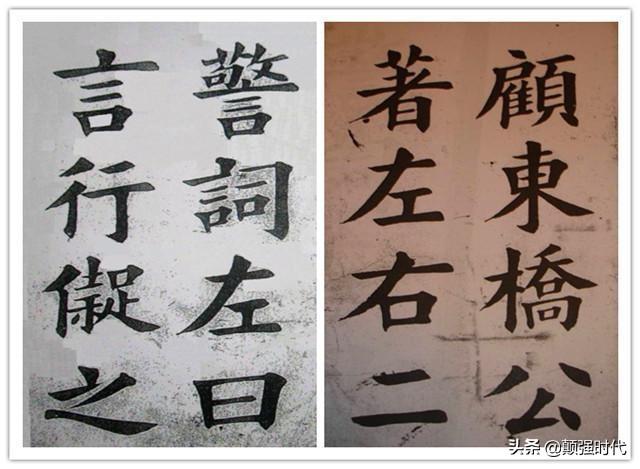 顧東橋公
著左右二
警詞左曰
言行儗之
头条 @颠强时代